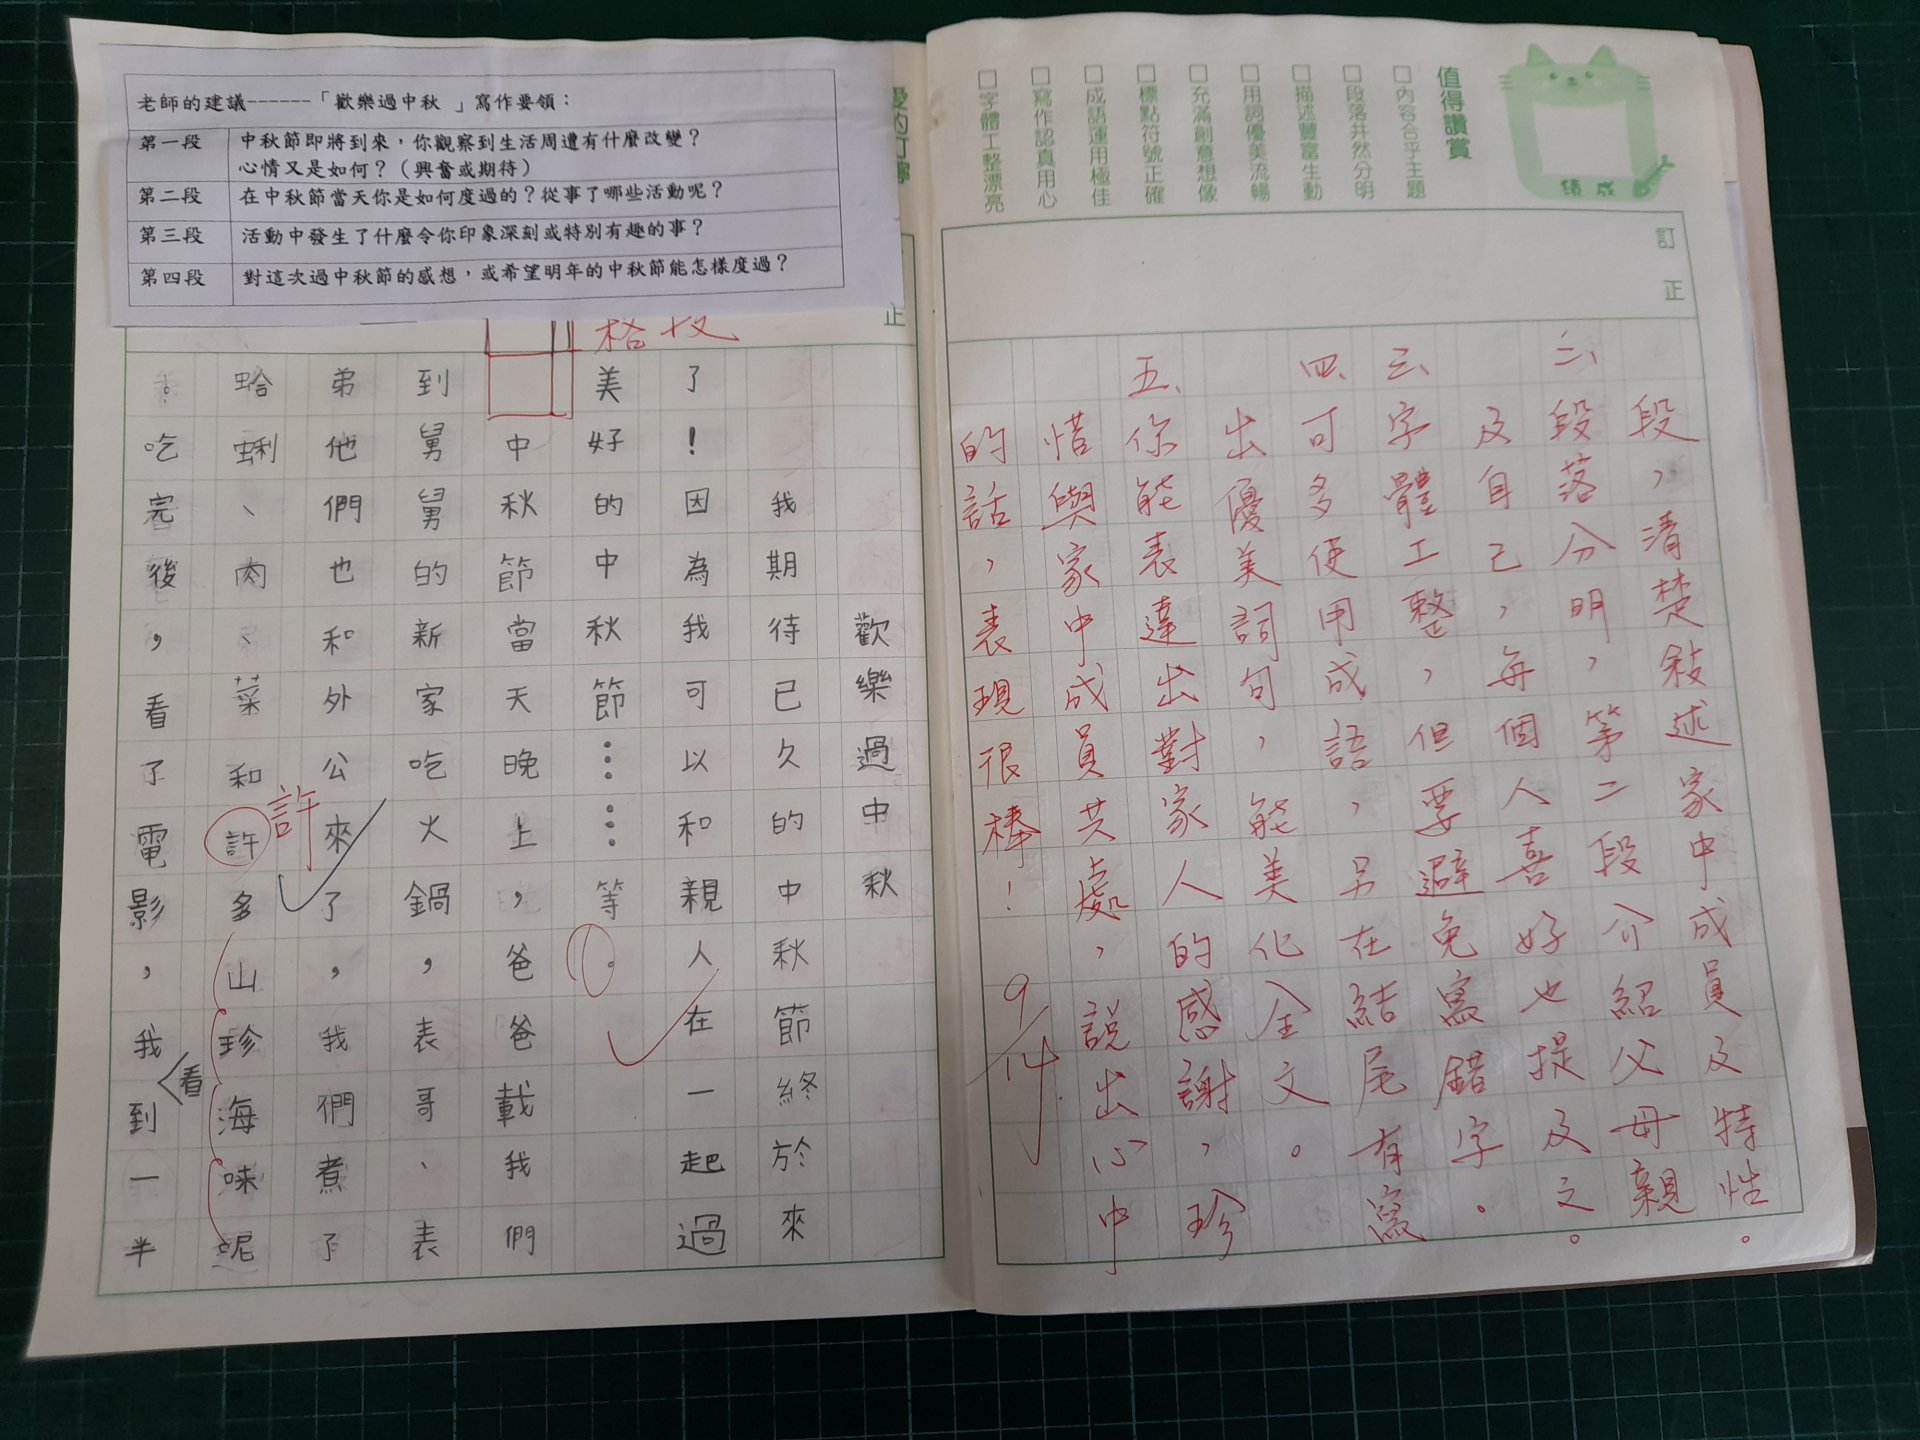 值得讚賞
□內容合乎主題
□段落井然分明
□描述豐富生動
□用詞優美流暢
□充滿創意想像
□標點符號正確
□成語運用極佳
□寫作認真用心
□字體工整漂亮
成績
訂正
段，清楚敍述家中成員及特性。
二、段落分明，第二段介紹父母親
及自己，每個人喜好也提及之。
三、字體工整，但要避免寫錯字。
四、可多使用成語，另在結尾有寫
出優美詞句，能美化全文。
五、你能表達出對家人的感謝，珍
惜與家中成員共處，說出心中
的話，表現很棒！
9/14
老師的建議------「歡樂過中秋 」寫作要領：
第一段 中秋節即將到來，你觀察到生活周遭有什麼改變？
心情又是如何？（興奮或期待）
第二段 在中秋節當天你是如何度過的？從事了哪些活動呢？
第三段 活動中發生了什麼令你印象深刻或特別有趣的事？
第四段 對這次過中秋節的感想，或希望明年的中秋節能怎樣度過？
正
歡樂過中秋
我期待已久的中秋節終於來
了！因為我可以和親人在一起過
美好的中秋節⋯⋯等。
中秋節當天晚上，爸爸載我們
到舅舅的新家吃火鍋，表哥、表
弟他們也和外公來了，我們煮了
蛤蜊、肉、菜和許多山珍海味呢
許
。吃完後，看了電影，我到一半
看